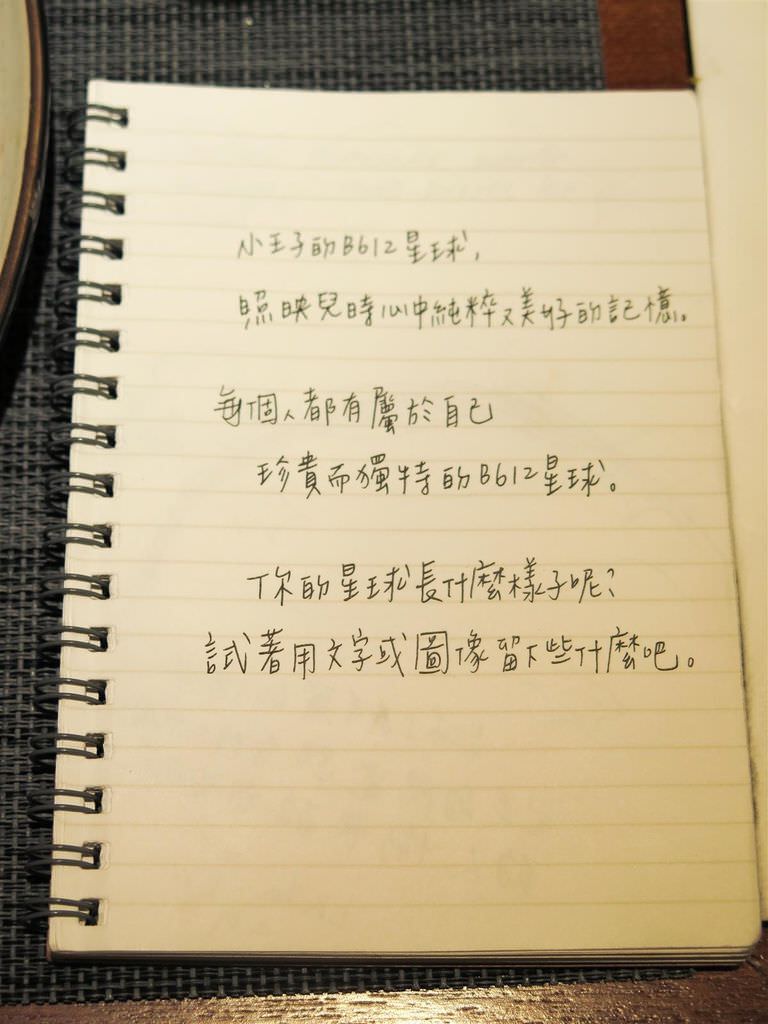 小王子的B612星球,
照映兒時心中純粹又美好的記憶。
每個人都有屬於自己
珍貴而獨特的B612星球。
你的星球長什麼樣子呢?
試著用文字或圖像留下些什麼吧。